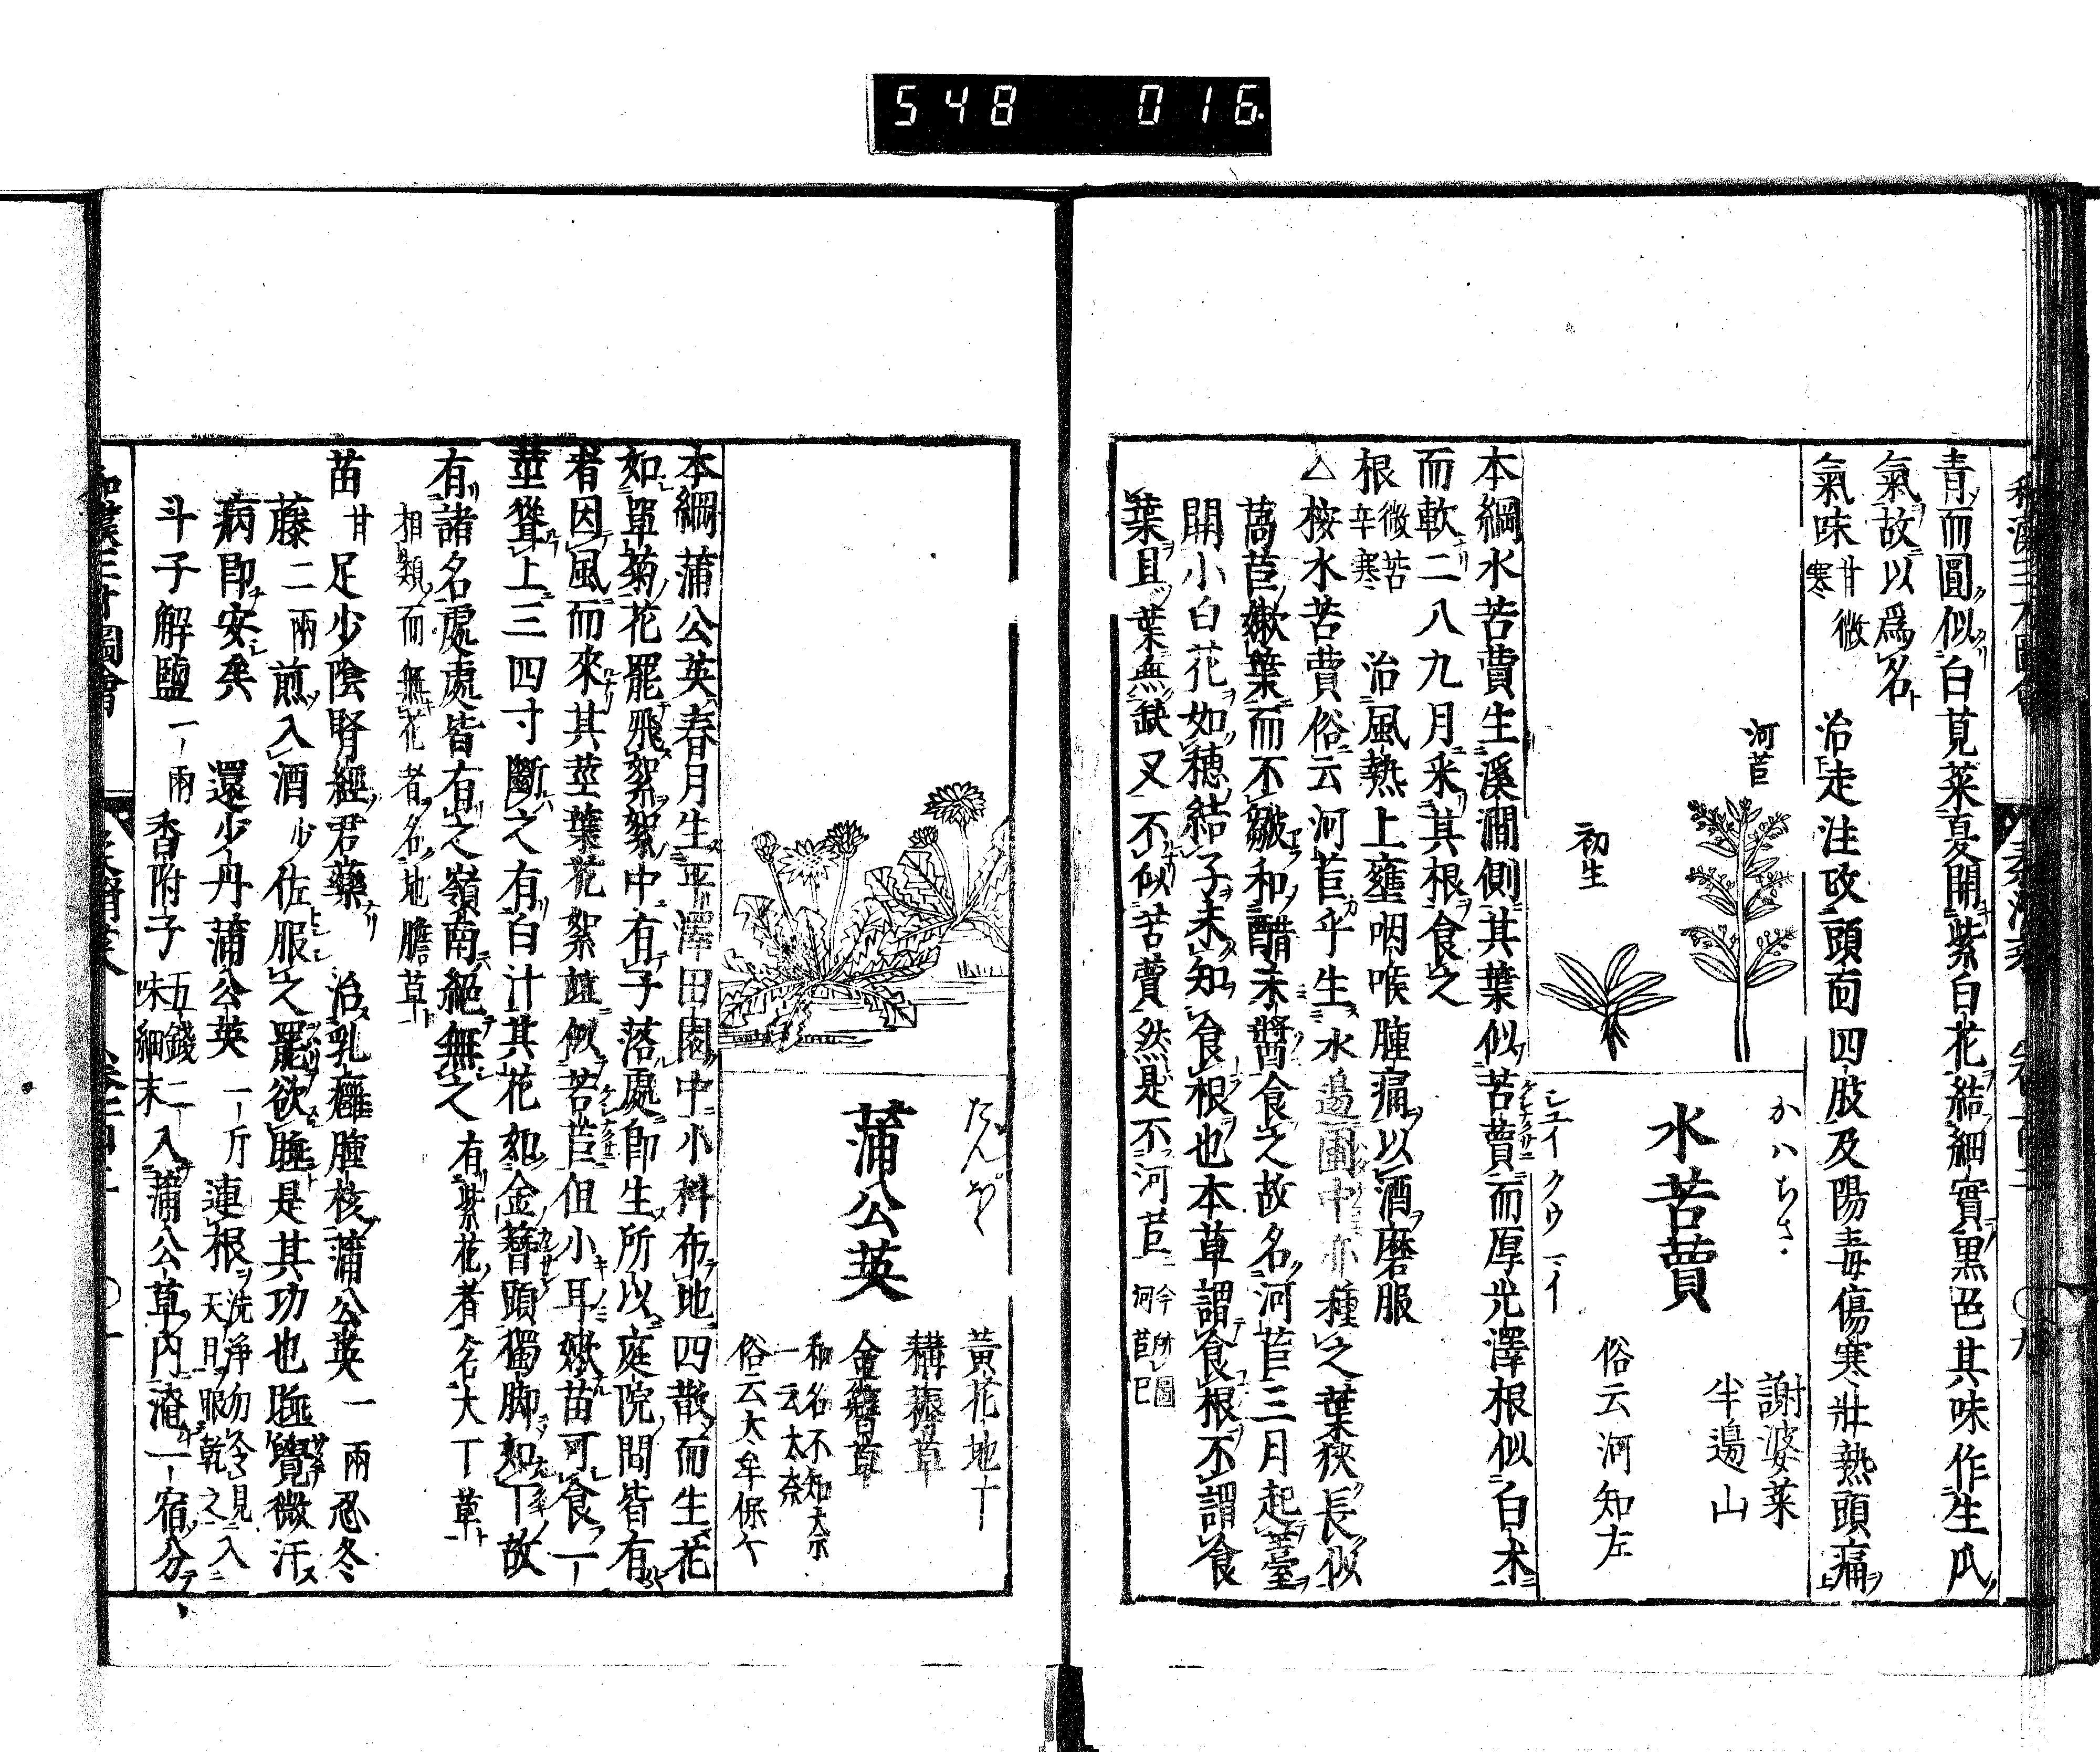 548 016
青而圓似白莧菜夏開紫白花結細實黒色其味作生瓜
氣故以爲名
氣味 甘微寒 治走注攻頭面四肢及陽毒傷寒壯熱頭痛
河苣
初生
かハちさ
水苦蕒
シユイ クウ マイ
謝婆菜
半邊山
俗云河知左
本綱水苦蕒生溪澗側其葉似苦蕒而厚光澤根似白朮
而軟二八九月采其根食之
根 微苦辛寒 治風熱上壅咽喉腫痛以酒磨服
△按水苦蕒俗云河苣乎生水邊圃中亦種之葉狹長似
萵苣嫩葉而不皺和醋未醬食之故名河苣三月起薹
開小白花如穂結子未知食根也本草謂食根不謂食
葉且葉無缺又不似苦蕒然是不河苣 今所圖河苣巳
たんほゝ
蒲公英
黃花地丁
耩耨草
金簪草
和名不知
一云太奈
俗云太牟保々
本綱蒲公英春月生平澤田園中小科布地四散而生花
如單菊花罷飛絮絮中有子落處即生所以庭院間皆有
者因風而來其莖葉花絮並似苦苣但小耳嫰苗可食一
莖聳上三四寸斷之有白汁其花如金簪頭獨脚如丁故
有諸名處處皆有之嶺南絕無之 有紫花者名大丁草
相類而無花者名地膽草
苗 甘 足少陰腎經君藥 治乳癰腫核蒲公英一兩忍冬
藤二兩煎入酒少佐服之罷欲睡是其功也睡覺微汗
病即安矣 還少丹蒲公英一斤連根 洗淨勿令見天日眼乾之 入
斗子解鹽一兩香附子五錢二味細末入蒲公草內淹一宿分